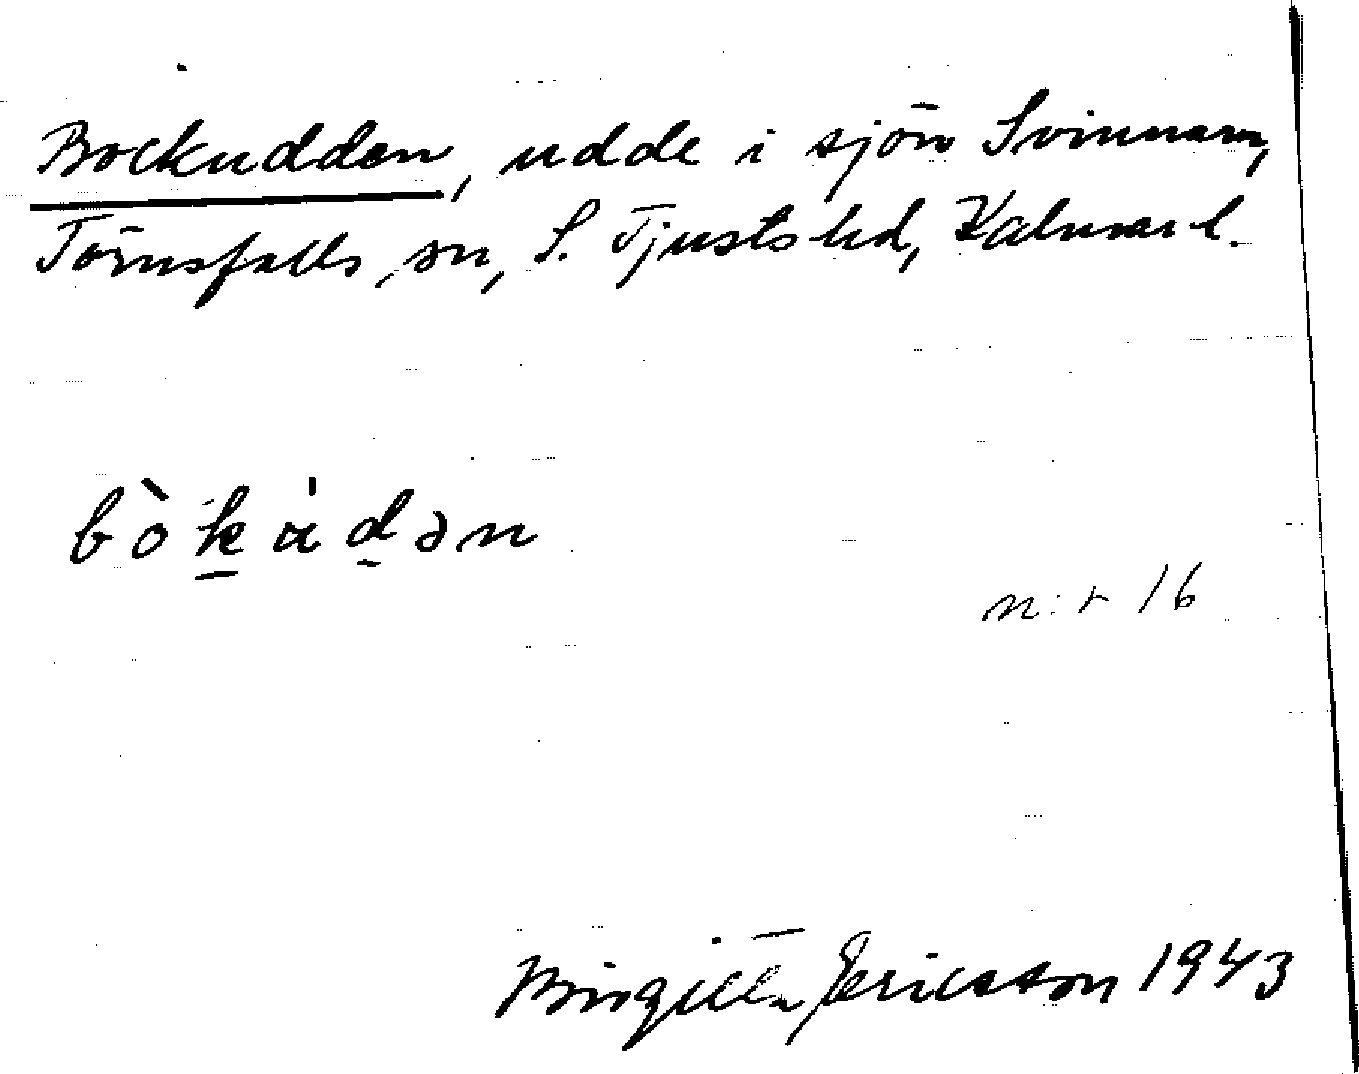 Bockudden, udde i sjön Svinnaren,
Törnsfalls sn, S. Tjusts hd, Kalmar l.
bòk̲àd̲ən
n:r 16
Birgitta Ericsson 1943